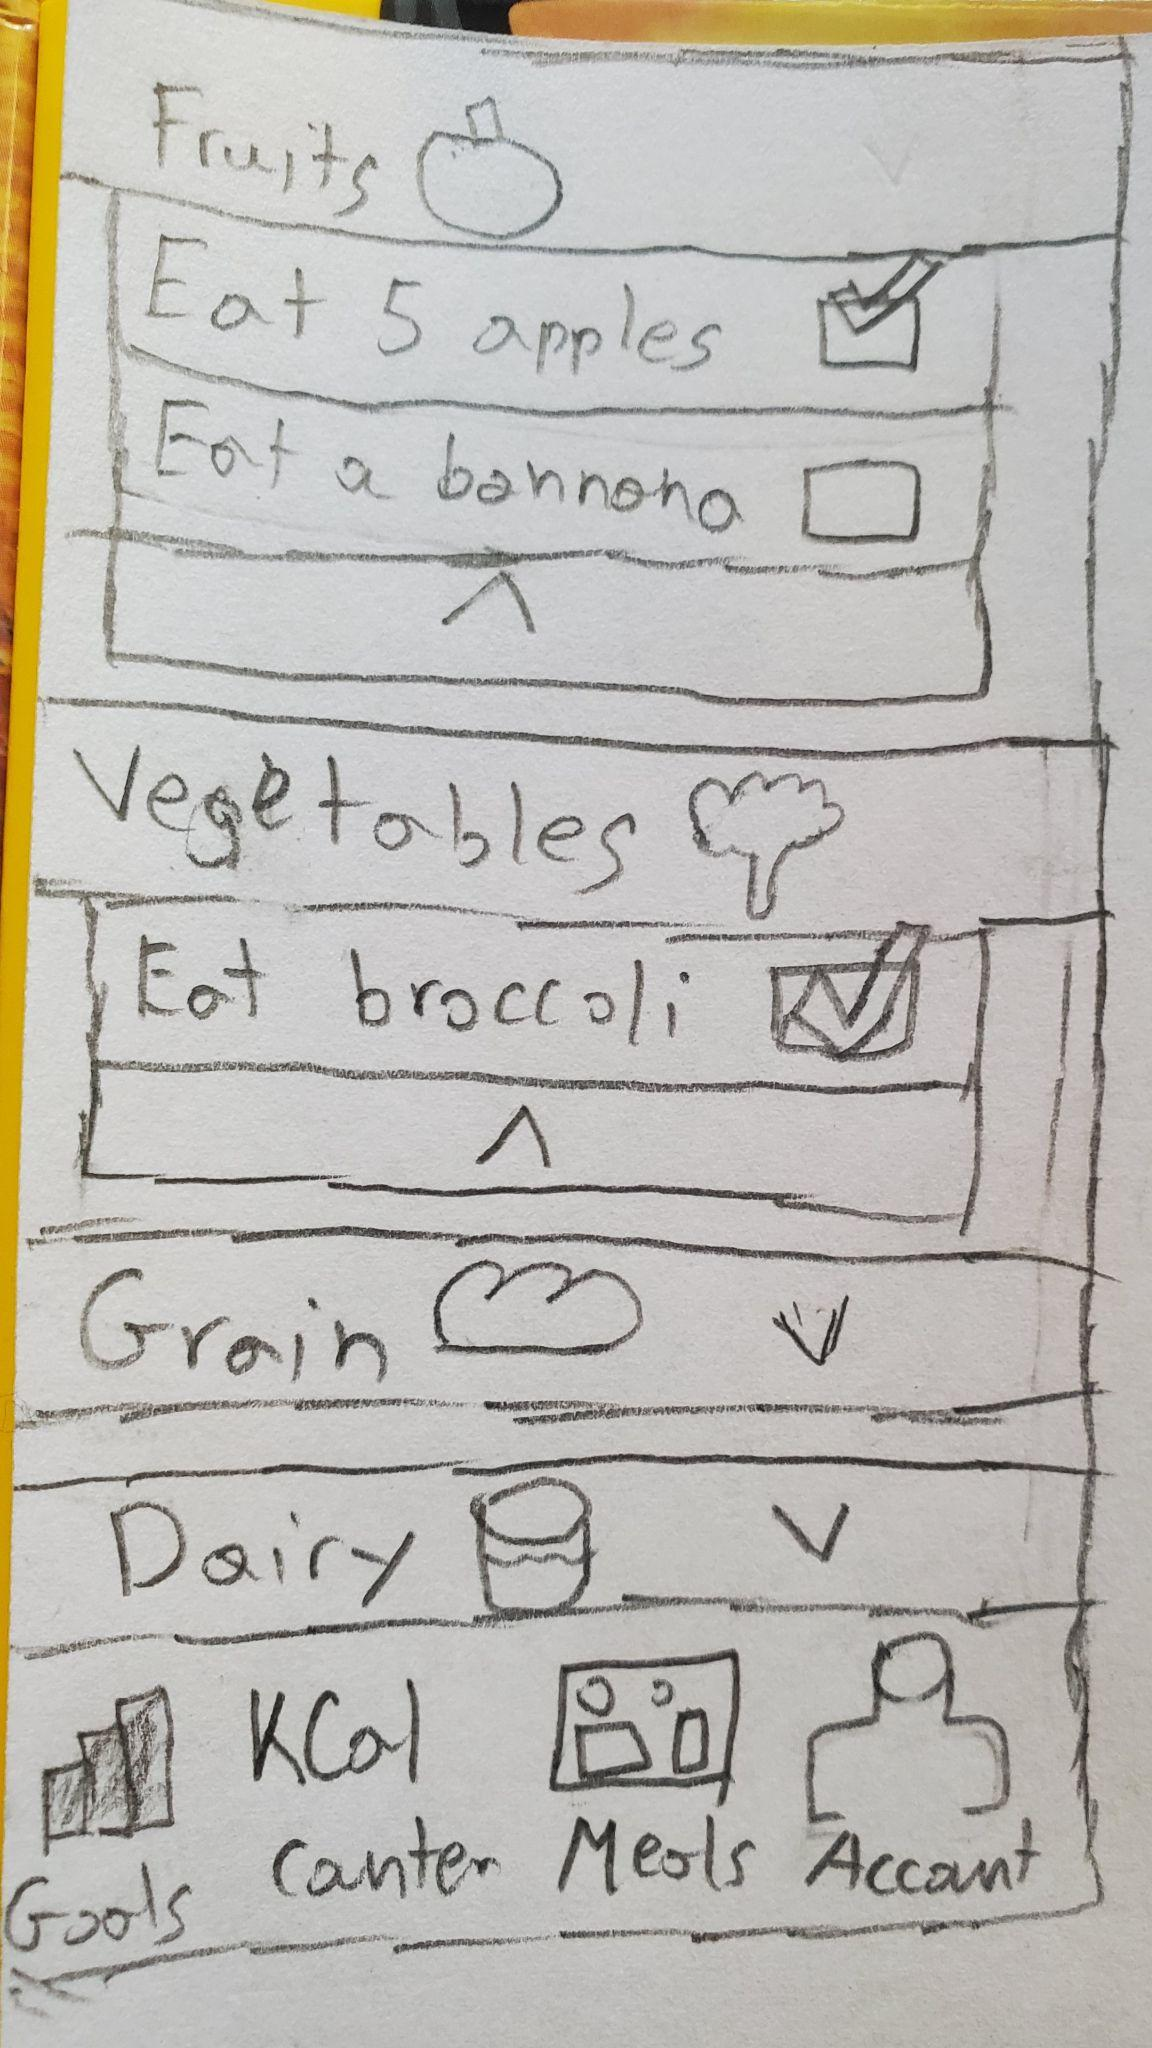 Fruits
Eat 5 apples
Eat a bannana
Vegetables
Eat broccoli
Grain
Dairy
KCal
Goals canter Meals Accant